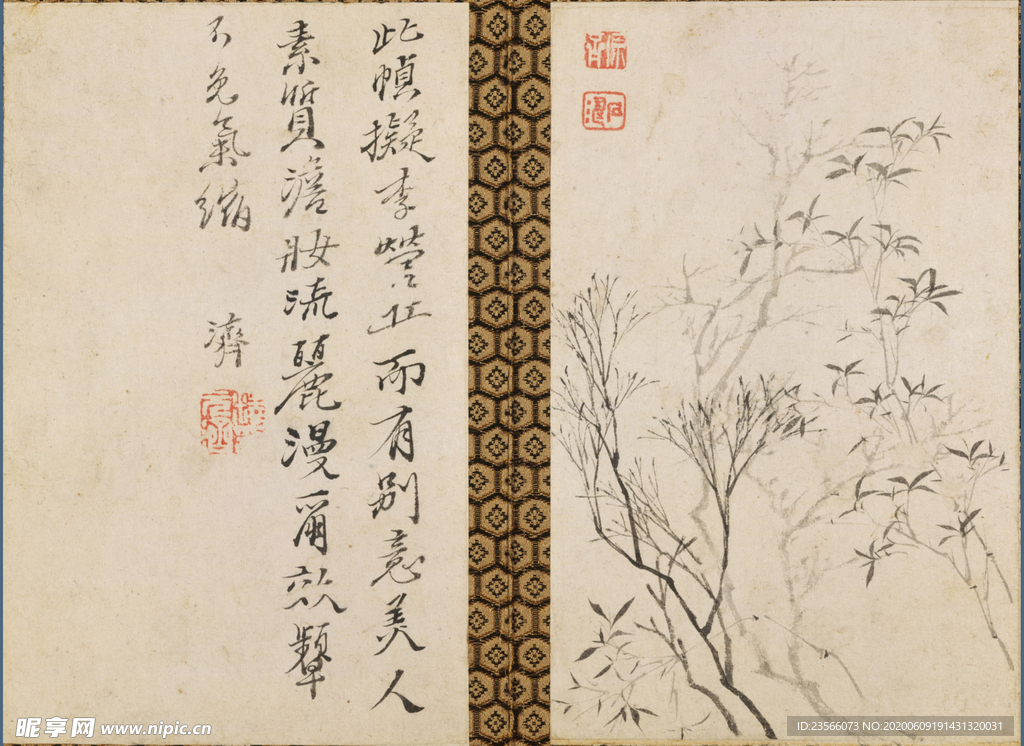 此幀擬李營丘而有別意美人
素質澹妝流麗漫爾效顰
不免氣縮
濟
昵享网 www.nipic.cn
ID:23566073 NO:20200609191431320031